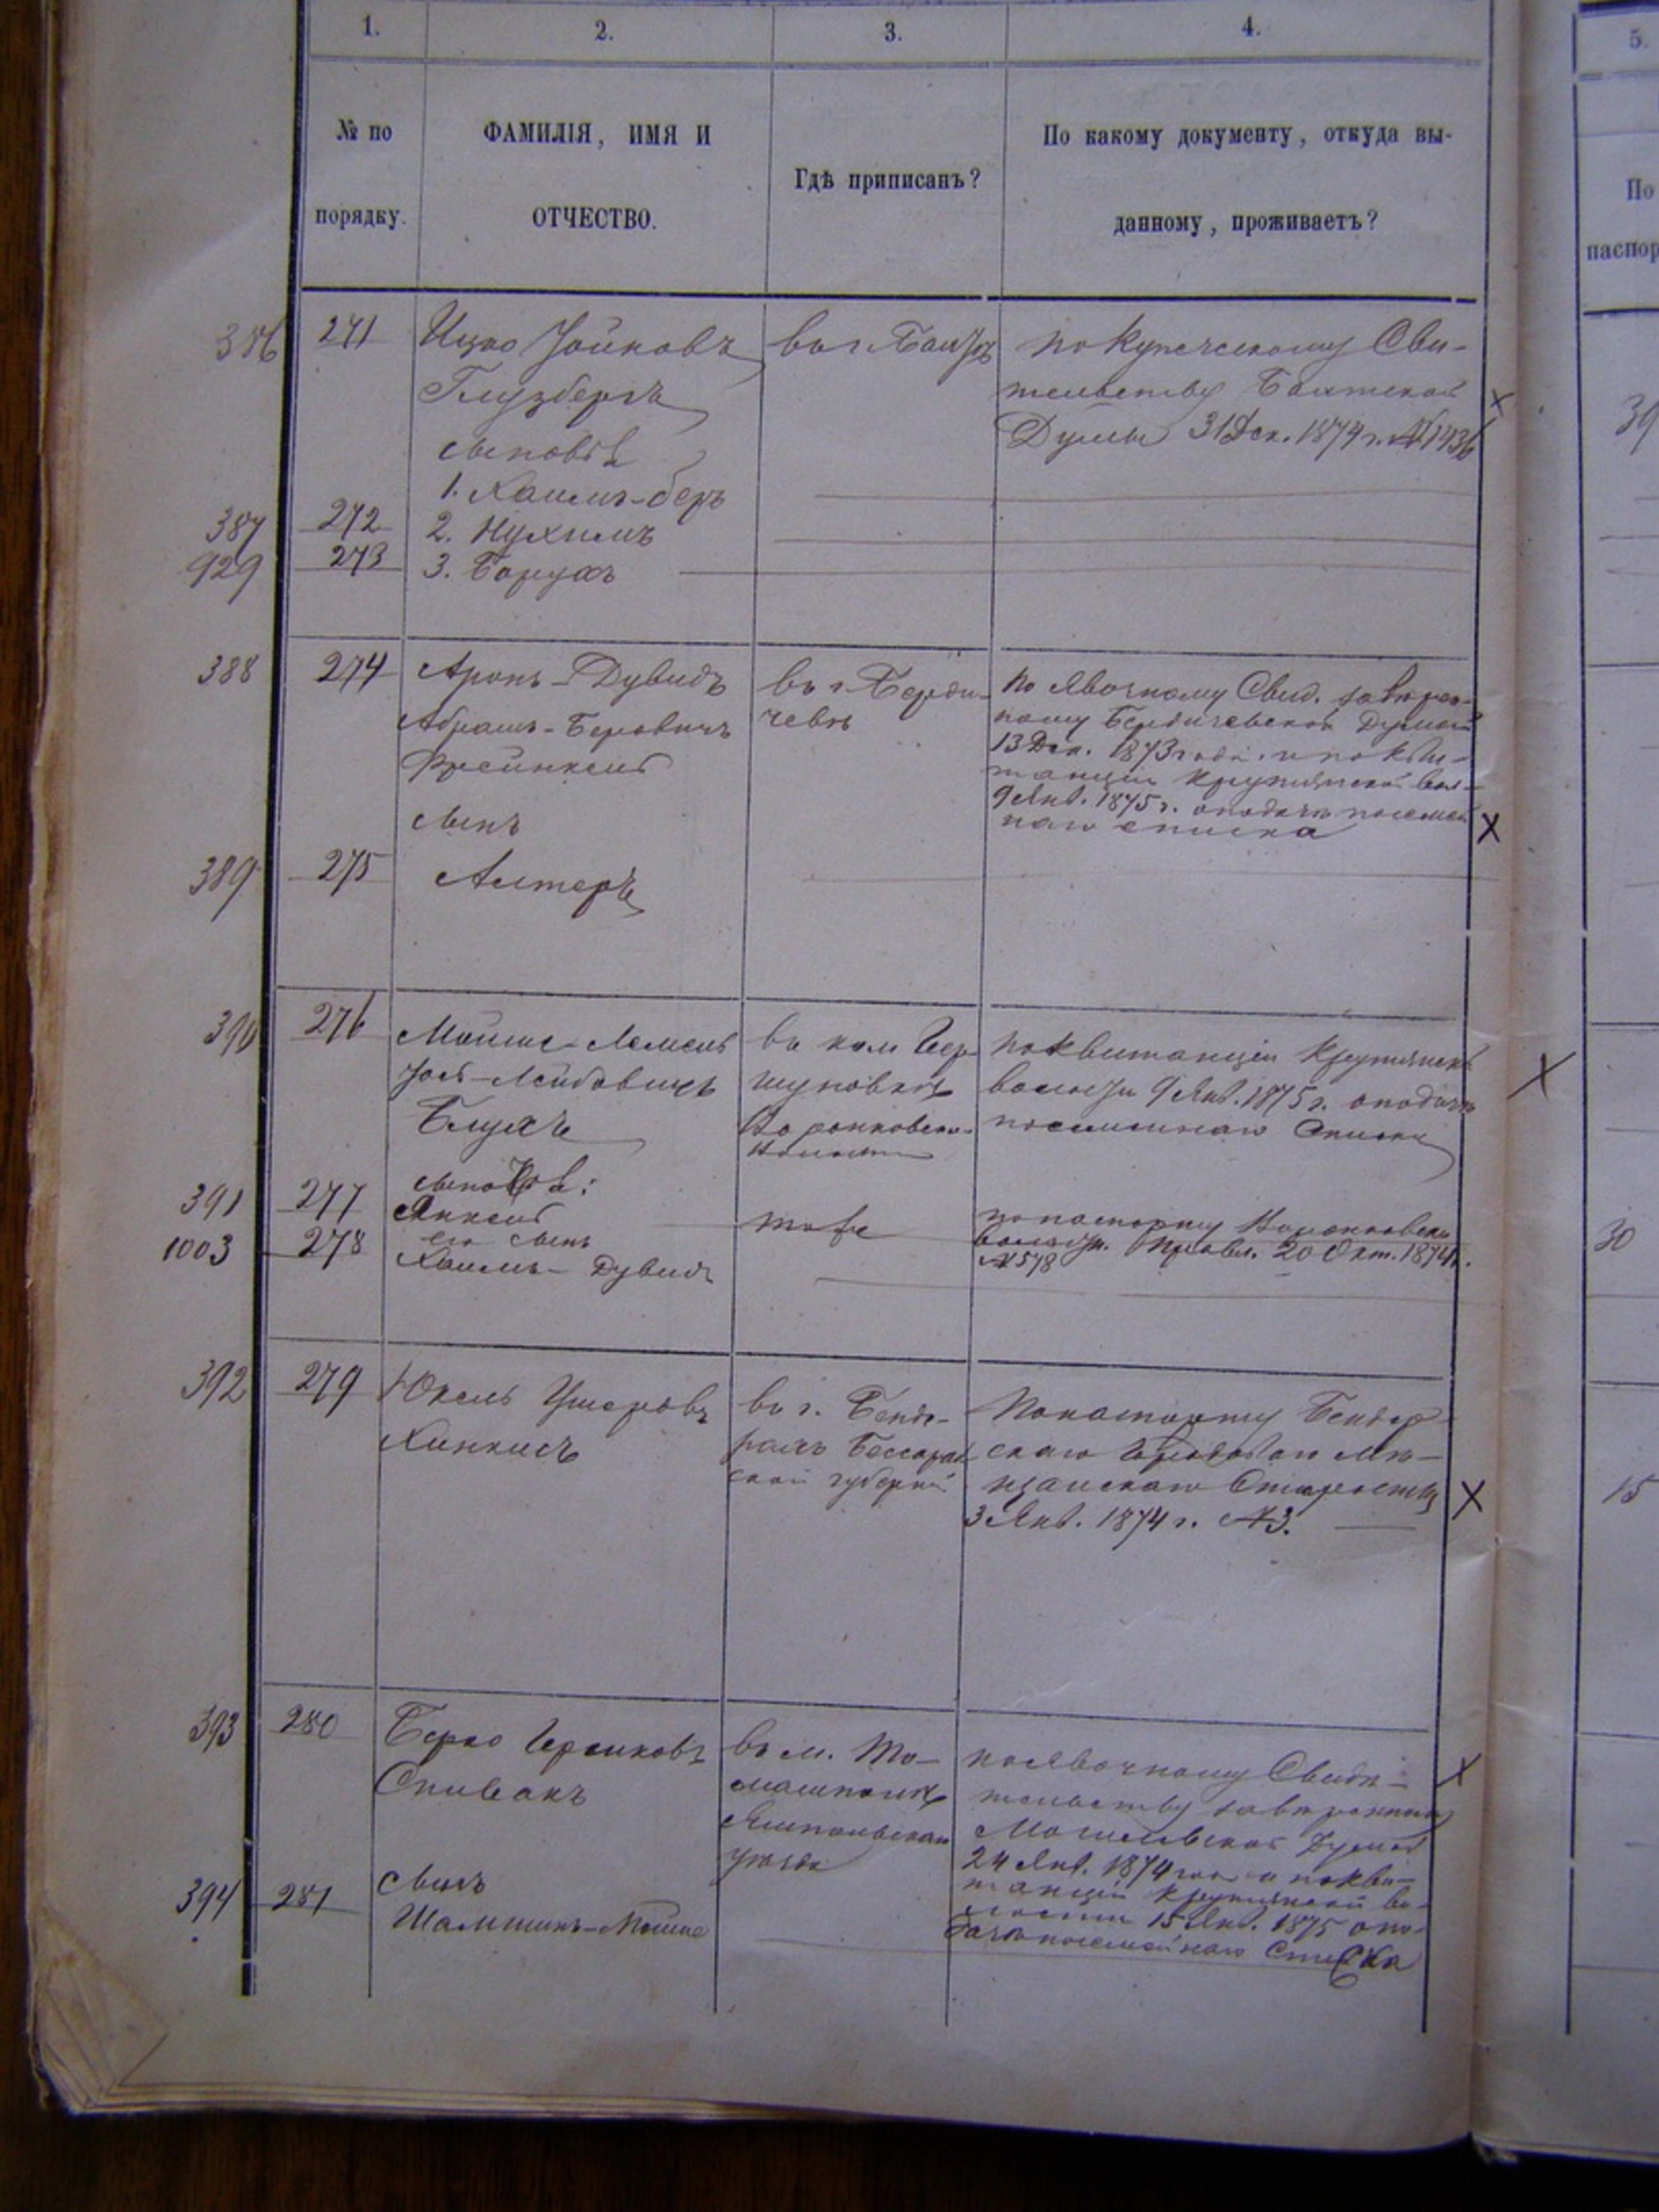 1. 2. 3. 4. 5.
№ по
порядку.
ФАМИЛІЯ, ИМЯ И
ОТЧЕСТВО.
Гдѣ приписанъ?
По какому документу, откуда вы-
данному, проживаетъ?
По
паспор
386 271 Ицко Іойновъ
Глузбергъ
сыновья
1. Хаимъ-беръ
въ г. Балтѣ
по Купеческому Сви-
тельству Балтской
Думы 31 Дек. 1874 г. № 1436
39
387 272 2. Нухимъ
929 273 3. Борухъ
388 274 Аронъ-Дувидъ
Абрамъ-Беровичъ
сынъ
въ г. Берди-
чевѣ
по Явочному Свид. завѣрен-
ному Бердичевской Думой
13 Дек. 1873 года и по кви-
танціи Крутянской вол.
9 Янв. 1875 г. о подачѣ посемей
наго списка
389 275 Алтеръ
390 276 Мошко-Лемель
Іось-Лейбовичъ
Блухъ
сыновья:
въ кол. Гер-
шуновкѣ
волости
по квитанціи Крутянск.
волости 9 Янв. 1875 г. о подачѣ
посемейнаго Списка
391 277 Янкель
тоже
по паспорту
волостн. Правл. 20 Окт. 1874 г.
№ 578
30
1003 278 его сынъ
Хаимъ-Дувидъ
392 279 Юкель Ушеровъ
Хинкисъ
въ г. Бенде-
рахъ Бессараб
ской губерніи
По паспорту Бендер-
скаго Городоваго Мѣ-
щанскаго Старосты
3 Янв. 1874 г. № 3.
15
393 280 Берко Гершковъ
Спивакъ
въ м. То-
машполѣ
Ямпольскаго
уѣзда
по Явочному Свидѣ-
тельству завѣренному
Могилевской Думой
24 Янв. 1874 года и по кви-
танціи Крутянской во-
лости 15 Янв. 1875 о по-
дачѣ посемейнаго Списка
394 281 сынъ